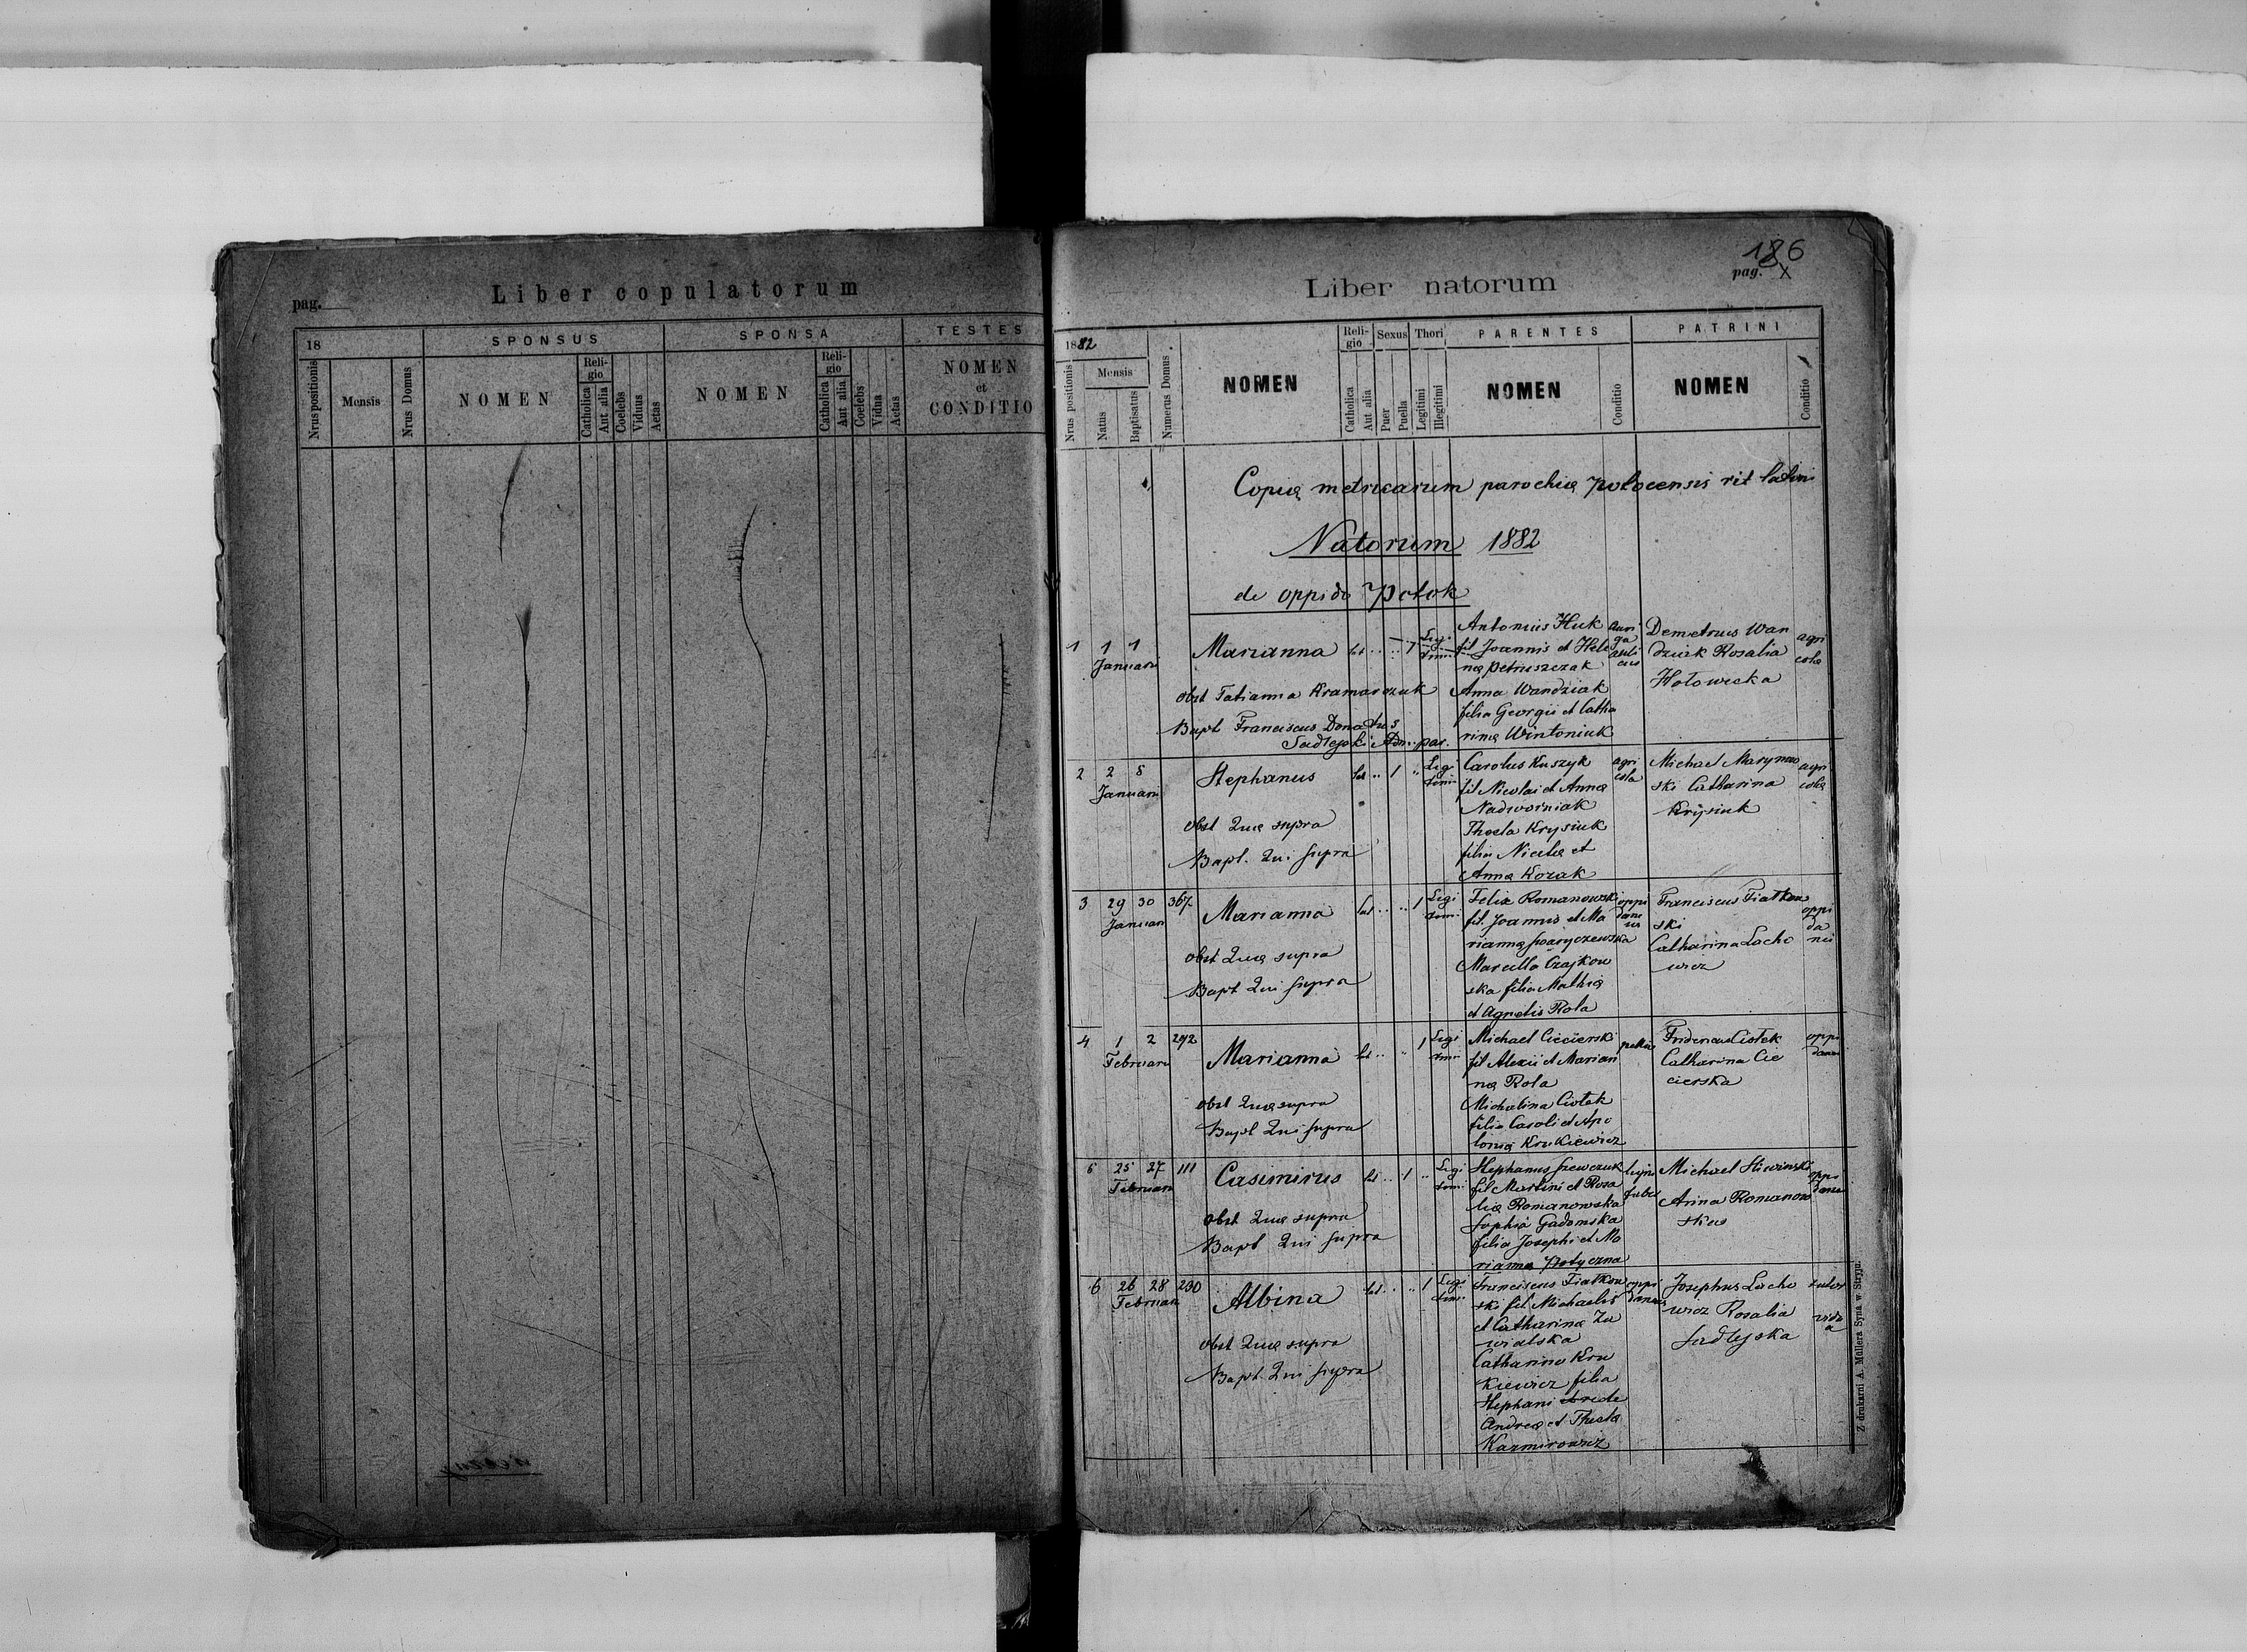 pag.
Liber copulatorum
18
SPONSUS
SPONSA
TESTES
Nrus positionis
Mensis
Nrus Domus
NOMEN
Religio
Catholica
Aut alia
Coelebs
Viduus
Aetas
NOMEN
Religio
Catholica
Aut alia
Coelebs
Vidua
Aetas
NOMEN
et
CONDITIO
186
pag.
Liber natorum
1882
Nrus positionis
Mensis
Natus
Baptisatus
Numerus Domus.
NOMEN
Religio
Catholica
Aut alia
Sexus
Puer
Puella
Thori
Legitimi
Illegitimi
PARENTES
NOMEN
Conditio
PATRINI
NOMEN
Conditio
Copia metricarum parochia potocensis rit latini
Natorum 1882
de oppido Potok
1 1 1 Januarii
Marianna
1 Legi
timi
Obst Tatianna Kramarczuk
Bapt Franciscus Donatus
Sadlejski Adm. par.
Antonius Huk
fil Joannis et Hele
na Petruszczak
Anna Wandziak
filia Georgii et Catha
rina Wintoniuk
Demetrius Wan
dziak Rosalia
Hotowecka
agri
cola
2 2 8 Januarii
Stephanus
1 Legi
timi
Obst Quae supra
Bapt. Qui supra
Carolus Kuszyk
fil Nicolai et Anna
Nadworniak
Thecla Krysiuk
filia Niceta et
Anna Kozak
agri
cola
Michael Marynow
ski Catharina
Krysiuk
agri
cola
3 29 30 367
Januari
Marianna
1 Legi
timi
Obst Quae supra
Bapt Qui supra
Felix Romanowski
fil. Joannis et Ma
rianna
Marcella Czajkow
ska filia Mathia
et Agnetis Rola
oppi
danus
Franciscus Fiatkow
ski
Catharina Lacho
wicz
oppi
da
nii
4 1 2 292
Februarii
Marianna
1 Legi
timi
Obst Quae supra
Bapt Qui supra
Michael Ciecierski
fil Alexii et Marian
na Rola
Michalina Ciołek
filia Caroli et Apo
lonia Krukiewicz
Fridericus Ciołek
Catharina Cie
cierska
oppi
danus
5 25 27 111
Februarii
Casimirus
1 Legi
timi
Obst Quae supra
Bapt Qui supra
Stephanus Szewczuk
fil Martini et Rosa
lia Romanowska
Sophia Gadomska
filia Josephi et Ma
rianna Potyczna
Michael Sliwinski
Anna Romanow
ska
oppi
danus
6 26 28 230
Februarii
Albina
1 Legi
timi
Obst Quae supra
Bapt. Qui supra
Franciscus Fiatkow
ski fil Michaelis
et Catharina Za
wialska
Catharina Kru
kiewicz filia
Stephani
Andrea et Thecla
Kazmirowicz
oppi
danus
Josephus Lacho
wicz Rosalia
Sadlejska
sutor
vidu
a
Z drukarni A. Müllera Syna w Stryju.